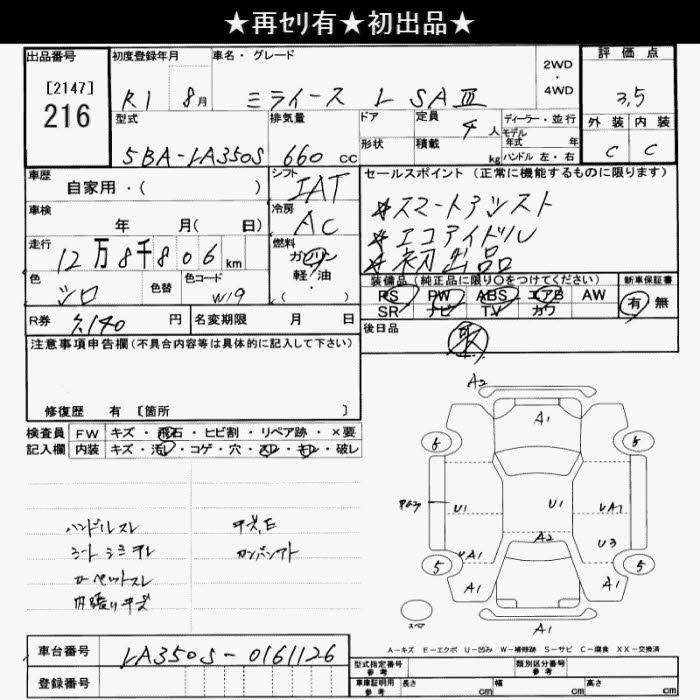 ★再ｾﾘ有★初出品★
出品番号
[2147]
216
初度登録年月
R1 8月
車名・グレード
ミライース L SAⅢ
2WD
・
4WD
評価点
3.5
外装 内装
C C
型式
5BA-LA350S
排気量
660 cc
ドア
形状
定員
4 人
積載
kg
ディーラー・並行
モデル
年式 年
ハンドル 左・右
車歴
自家用・( )
車検
年 月( 日)
走行
12万8千806km
色
シロ
色替
色コード
W19
シフト
IAT
冷房
AC
燃料
ガソリン
軽・油
( )
セールスポイント (正常に機能するものに限ります)
☆スマートアシスト
☆エコアイドル
☆初出品
装備品 (純正品に限り○をつけてください)
PS PW ABS エアB AW
SR ナビ TV カワ
新車保証書
有・無
後日品
R券
円
名変期限 月 日
注意事項申告欄(不具合内容等は具体的に記入して下さい)
修復歴 有 [箇所 ]
検査員
記入欄
FW キズ・飛石・ヒビ割・リペア跡・×要
内装 キズ・汚レ・コゲ・穴・スレ・キレ・破レ
ハンドルスレ
シートシミヨレ
カーペットスレ
内張りキズ
A2
A1
6
6
U1
U1
UA1
A2
U3
UA1
5
5
A1
A1
スペア
A1
A-キズ E-エクボ U-凹み W-補修跡 S-サビ C-腐食 XX-交換済
車台番号
LA350S-0161126
登録番号
型式指定番号
参考
類別区分番号
参考
車庫証明用
参考
長さ cm
幅 cm
高さ cm